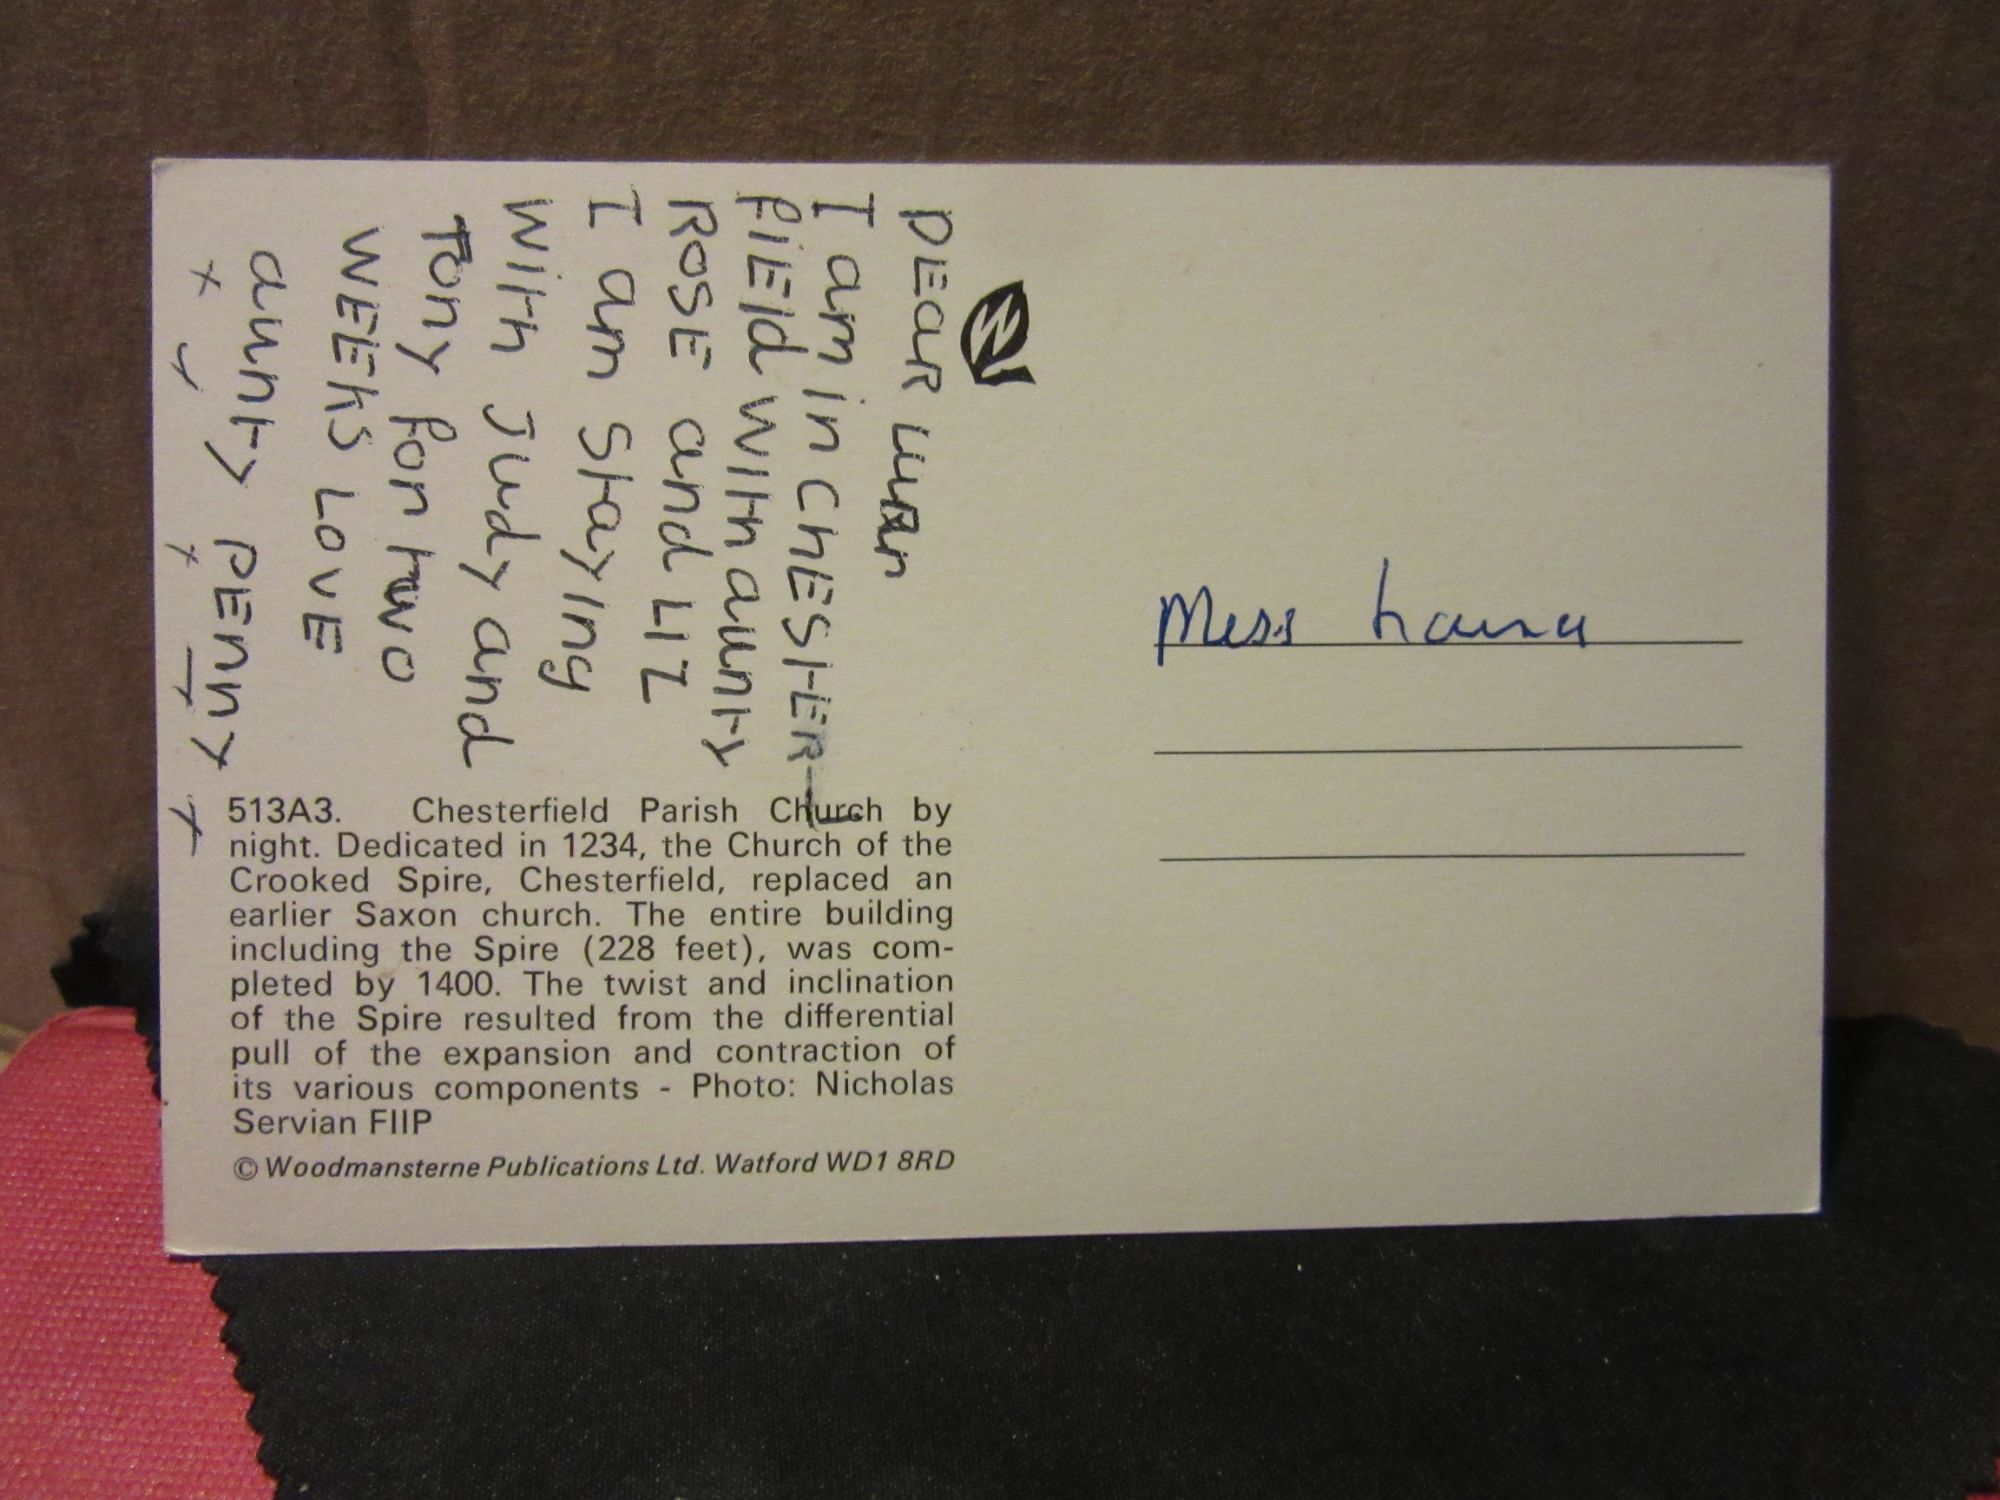 DEaR
I am in CHESTER-
FiEld with aunty
ROSE and LIZ
I am Staying
with Judy and
Tony for two
WEEKS LOVE
aunty PEnny
x x x x
Miss Laura
513A3. Chesterfield Parish Church by
night. Dedicated in 1234, the Church of the
Crooked Spire, Chesterfield, replaced an
earlier Saxon church. The entire building
including the Spire (228 feet), was com-
pleted by 1400. The twist and inclination
of the Spire resulted from the differential
pull of the expansion and contraction of
its various components - Photo: Nicholas
Servian FIIP
© Woodmansterne Publications Ltd. Watford WD1 8RD